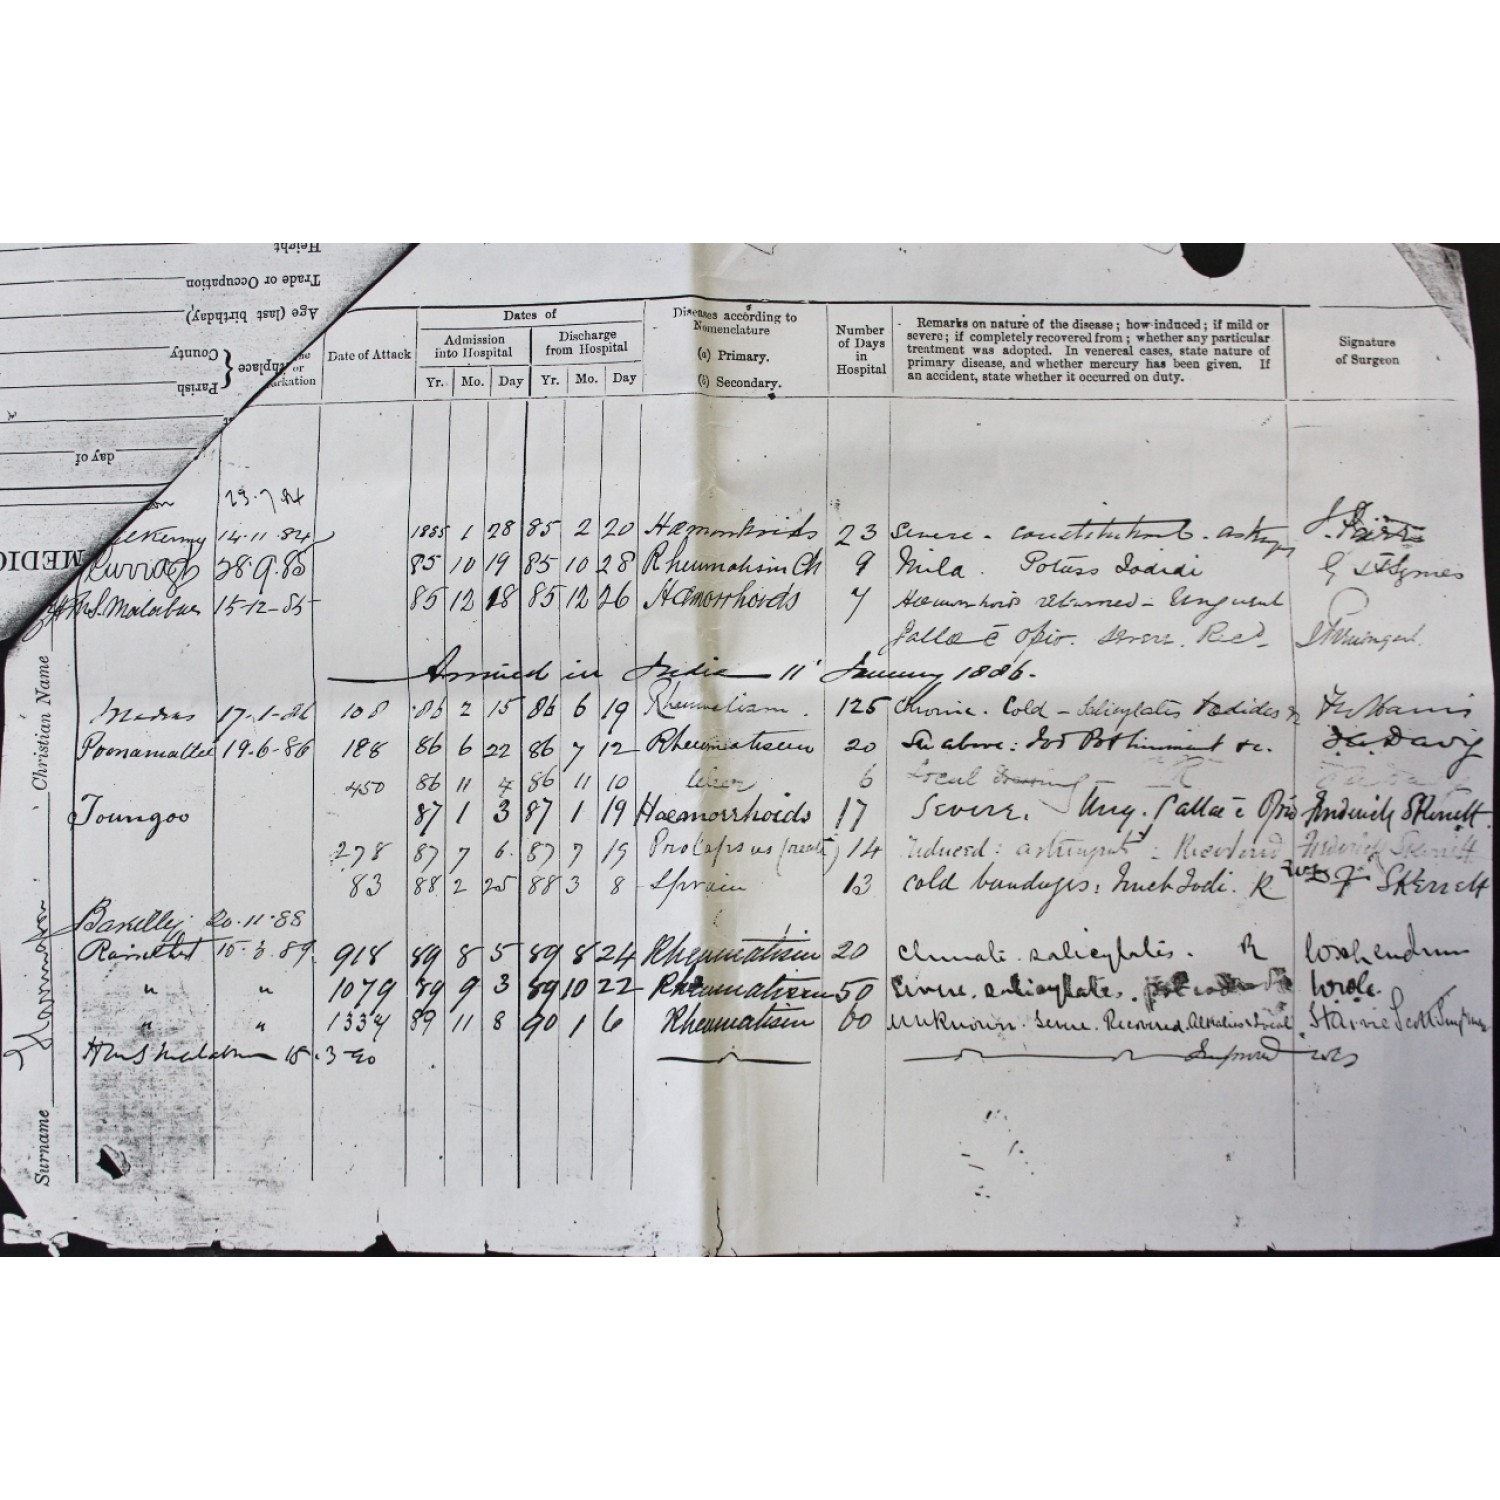 Height
Trade or Occupation
Age (last birthday)
County
Parish
day of
MEDIC
Christian Name
Surname
or
Date of Attack
Dates of
Admission into Hospital
Discharge from Hospital
Yr. Mo. Day Yr. Mo. Day
Diseases according to Nomenclature
(a) Primary.
(b) Secondary.
Number of Days in Hospital
Remarks on nature of the disease; how induced; if mild or
severe; if completely recovered from; whether any particular
treatment was adopted. In venereal cases, state nature of
primary disease, and whether mercury has been given. If
an accident, state whether it occurred on duty.
Signature of Surgeon
23.7.84
14.11.84 1885 1 28 85 2 20 Hæmorrhoids 23 Severe - constitutional -
Curragh 28.9.85 85 10 19 85 10 28 Rheumatism Ch 9 Mild. Potass Iodidi
H.M.S. Malabar 15-12-85 85 12 18 85 12 26 Hæmorrhoids 7 Hæmorrhoids returned - Unguent
Gallæ c̄ Opio. Severe. Recd.
Arrived in India 11 January 1886.
Madras 17-1-86 108 86 2 15 86 6 19 Rheumatism. 125 Chronic. Cold - Salicylates Iodides
Poonamallee 19.6-86 188 86 6 22 86 7 12 Rheumatism 20 See above: Iod Pot liniment &c.
450 86 11 4 86 11 10 Ulcer 6 Local Dressing R
Toungoo 87 1 3 87 1 19 Hæmorrhoids 17 Severe. Ung. Gallæ c̄ Opio Frederick Skerrett
278 87 7 6 87 7 19 Prolapsus (recti) 14 reduced: astringents: Recovered Frederick Skerrett
83 88 2 25 88 3 8 Sprain 13 cold bandages: Iodi. R F Skerrett
Bareilly 20.11.88
Ranikhet 15.3.89 918 89 8 5 89 8 24 Rheumatism 20 climate. salicylates. R
" " 1079 89 9 3 89 10 22 Rheumatism 50 Severe. salicylates.
" " 1334 89 11 8 90 1 6 Rheumatism 60 unknown. Severe. Recovered. Alkalies & Local
HMS Malabar 15.3-90 Improved